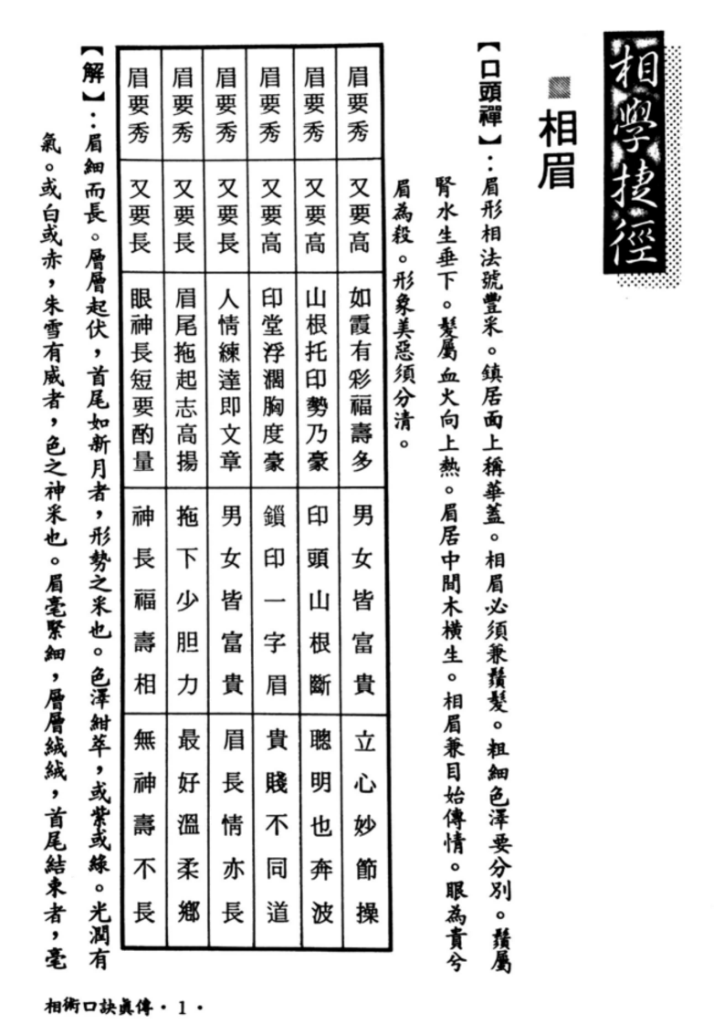 相學捷徑
■相眉
【口頭禪】：眉形相法號豐采。鎮居面上稱華蓋。相眉必須兼鬚髮。粗細色澤要分別。鬚屬
腎水生垂下。髮屬血火向上熱。眉居中間木橫生。相眉兼目始傳情。眼為貴兮
眉為殺。形象美惡須分清。
眉要秀 又要高 如霞有彩福壽多 男女皆富貴 立心妙節操
眉要秀 又要高 山根托印勢乃豪 印頭山根斷 聰明也奔波
眉要秀 又要高 印堂浮濶胸度豪 鎖印一字眉 貴賤不同道
眉要秀 又要長 人情練達即文章 男女皆富貴 眉長情亦長
眉要秀 又要長 眉尾拖起志高揚 拖下少胆力 最好溫柔鄉
眉要秀 又要長 眼神長短要酌量 神長福壽相 無神壽不長
【解】：眉細而長。層層起伏，首尾如新月者，形勢之采也。色澤紺萃，或紫或綠。光潤有
氣。或白或赤，朱雪有威者，色之神采也。眉毫緊細，層層絨絨，首尾結束者，毫
相術口訣眞傳・1・